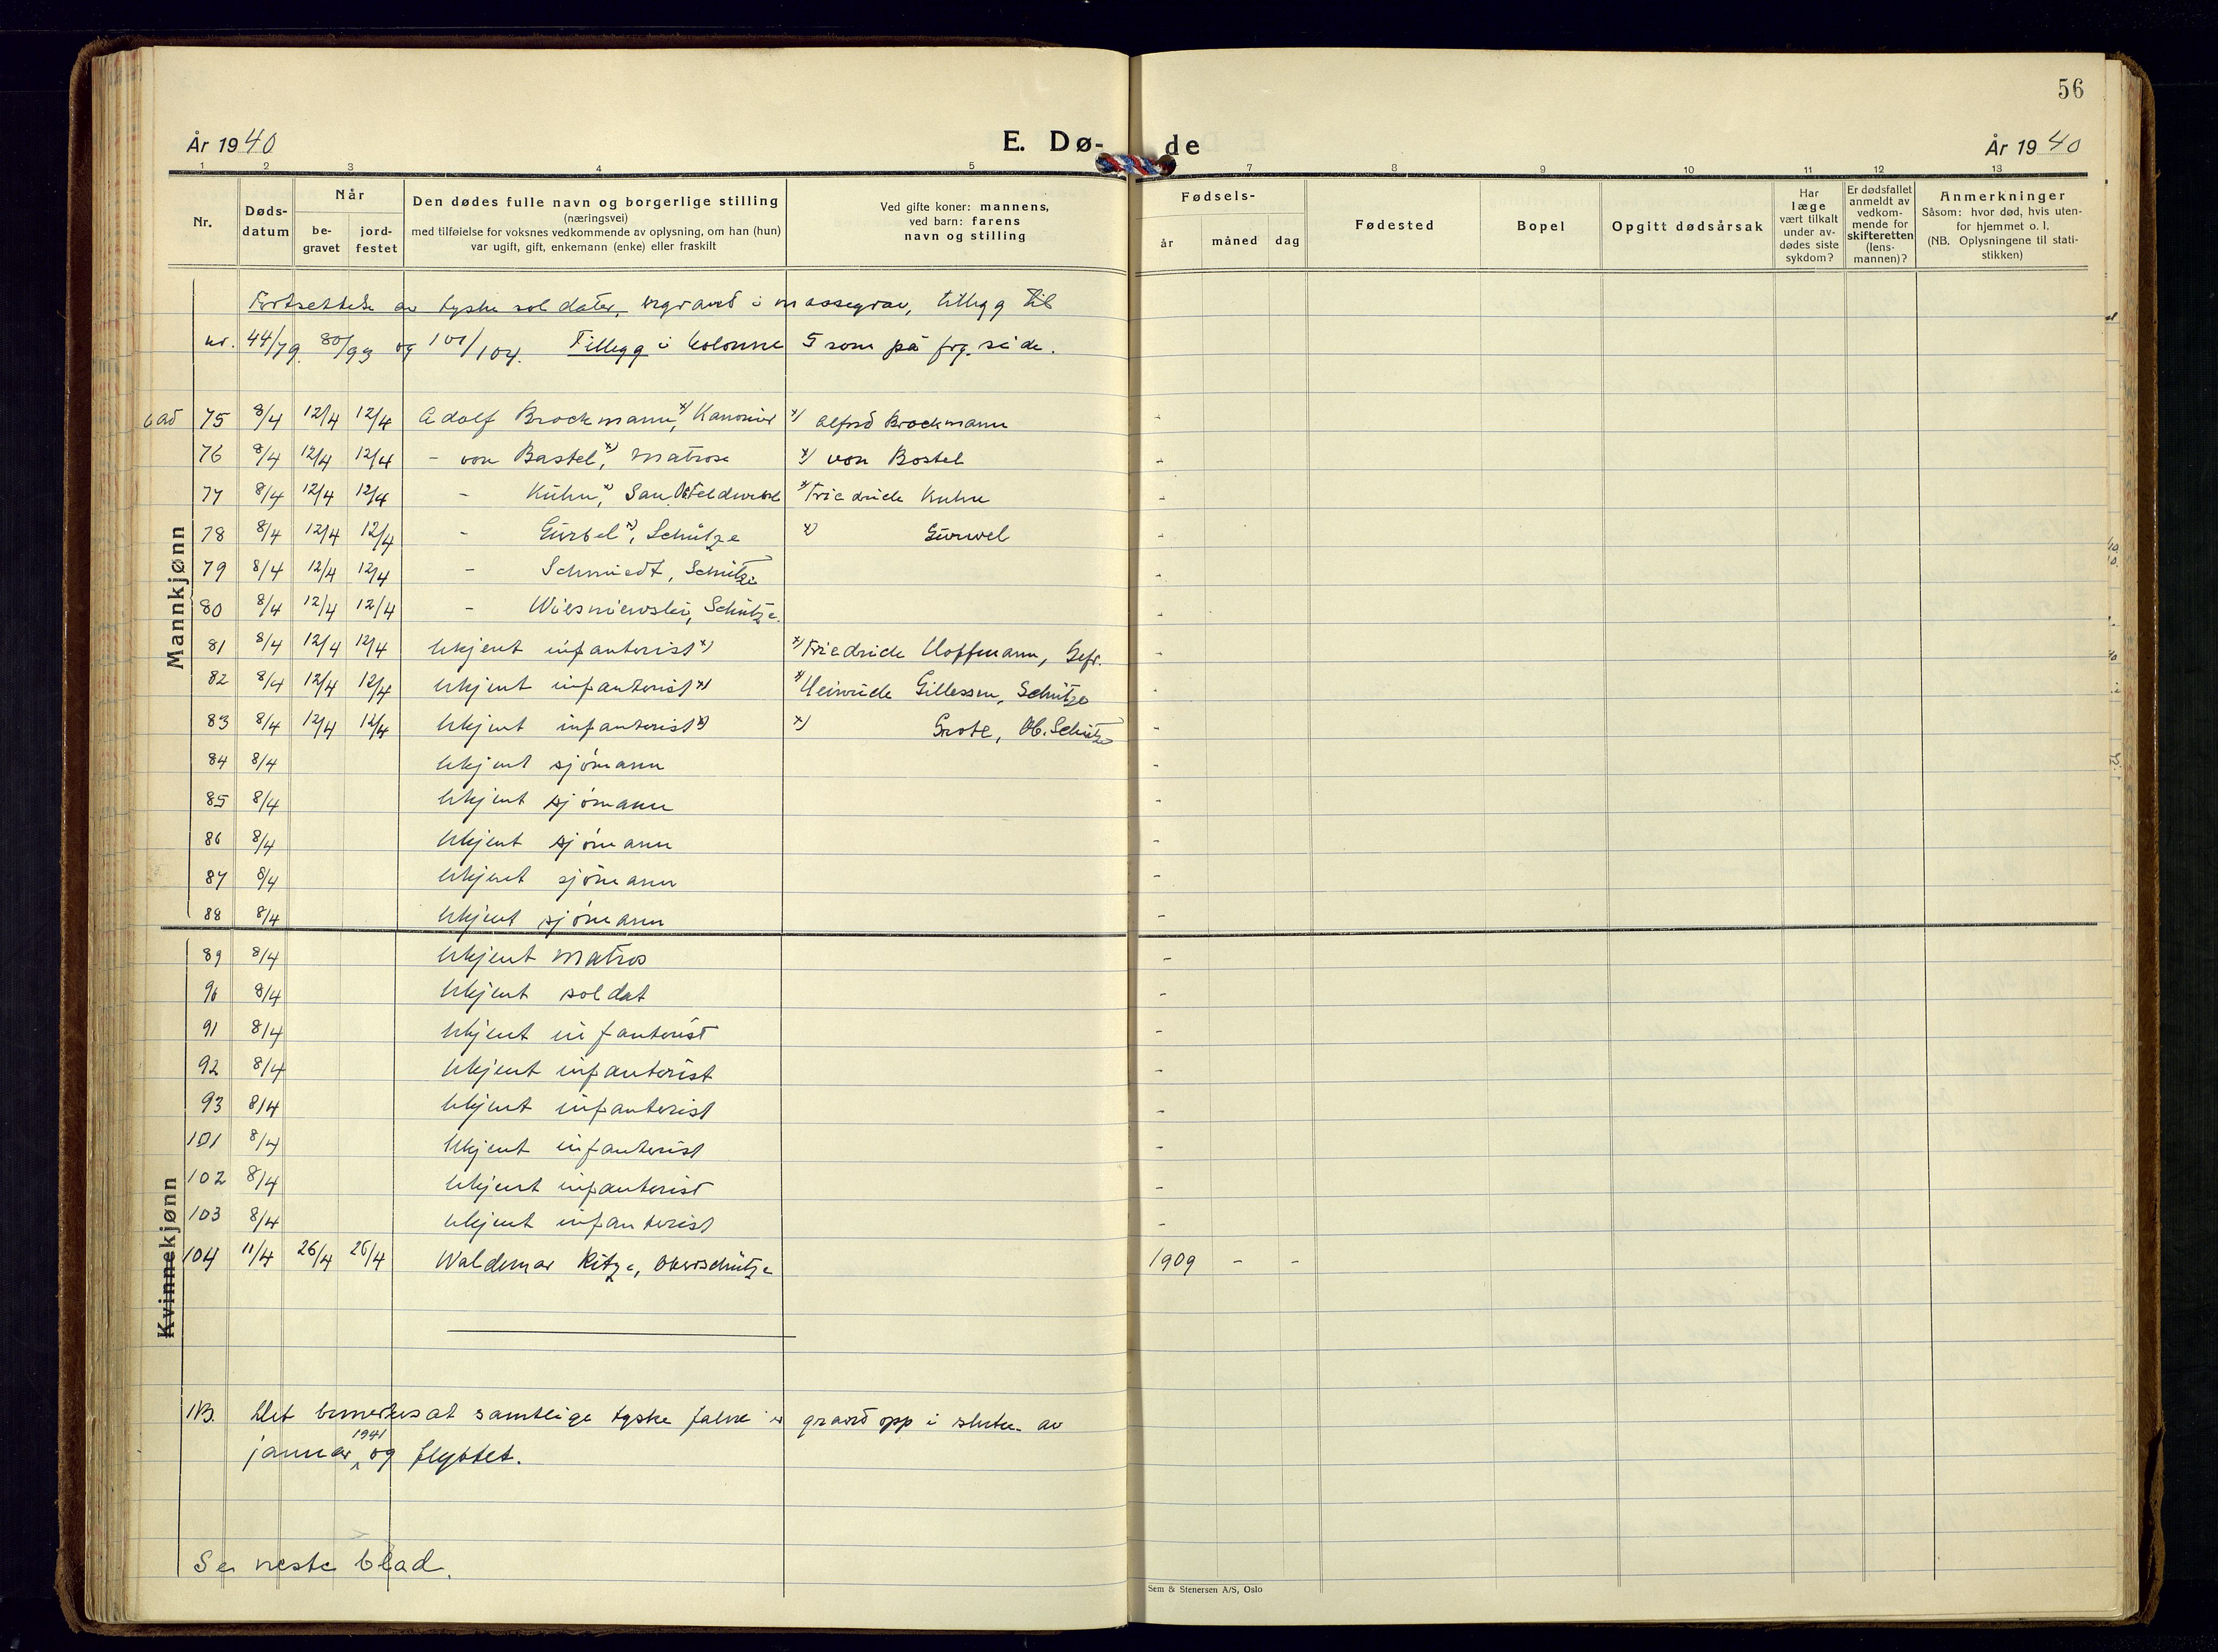 56
År 1940
E. Dø-
de
År 1940
1 2 3 4 5 7 8 9 10 11 12 13
Nr.
Døds-
datum
Når
be-
gravet
jord-
festet
Den dødes fulle navn og borgerlige stilling
(næringsvei)
med tilføielse for voksnes vedkommende av oplysning, om han (hun)
var ugift, gift, enkemann (enke) eller fraskilt
Ved gifte koner: mannens,
ved barn: farens
navn og stilling
Fødsels-
år måned dag
Fødested
Bopel
Opgitt dødsårsak
Har
læge
vært tilkalt
under av-
dødes siste
sykdom?
Er dødsfallet
anmeldt av
vedkom-
mende for
skifteretten
(lens-
mannen)?
Anmerkninger
Såsom: hvor død, hvis uten-
for hjemmet o. l.
(NB. Oplysningene til stati-
stikken)
Fortsettelse av tyske soldater, begravet i massegrav, tillegg til
nr. 44/79, 80/93 og 101/104. Tillegg i kolonne 5 som på frg. side.
Mannkjønn
75 8/4 12/4 12/4 Adolf Brockmann x), Kanonier x) Alfred Brockmann -
76 8/4 12/4 12/4 - von Bastel x), Matrose x) von Bostel -
77 8/4 12/4 12/4 - Kühn x), San. Feldwebel x) Friedrich Kuhn -
78 8/4 12/4 12/4 - Gürbel x), Schütze x) Gürwel -
79 8/4 12/4 12/4 - Schmiedt, Schütze -
80 8/4 12/4 12/4 - Wiesniewski, Schütze. -
81 8/4 12/4 12/4 Ukjent infanterist x) x) Friedrich Hoffmann, Gefr. -
82 8/4 12/4 12/4 Ukjent infanterist x) x) Heinrich Gillessen, Schütze -
83 8/4 12/4 12/4 Ukjent infanterist x) x) Grote, Ob. Schütze -
84 8/4 Ukjent sjömann -
85 8/4 Ukjent sjömann -
86 8/4 Ukjent sjömann -
87 8/4 Ukjent sjömann -
88 8/4 Ukjent sjömann -
Kvinnekjønn
89 8/4 Ukjent matros -
90 8/4 Ukjent soldat -
91 8/4 Ukjent infanterist -
92 8/4 Ukjent infanterist -
93 8/4 Ukjent infanterist -
101 8/4 Ukjent infanterist -
102 8/4 Ukjent infanterist -
103 8/4 Ukjent infanterist -
104 11/4 26/4 26/4 Waldemar Ritze, Oberschütze 1909 - -
NB. Det bemerkes at samtlige tyske falne er gravd opp i slutn. av
januar 1941 og flyttet.
Se neste blad.
Sem & Stenersen A/S, Oslo